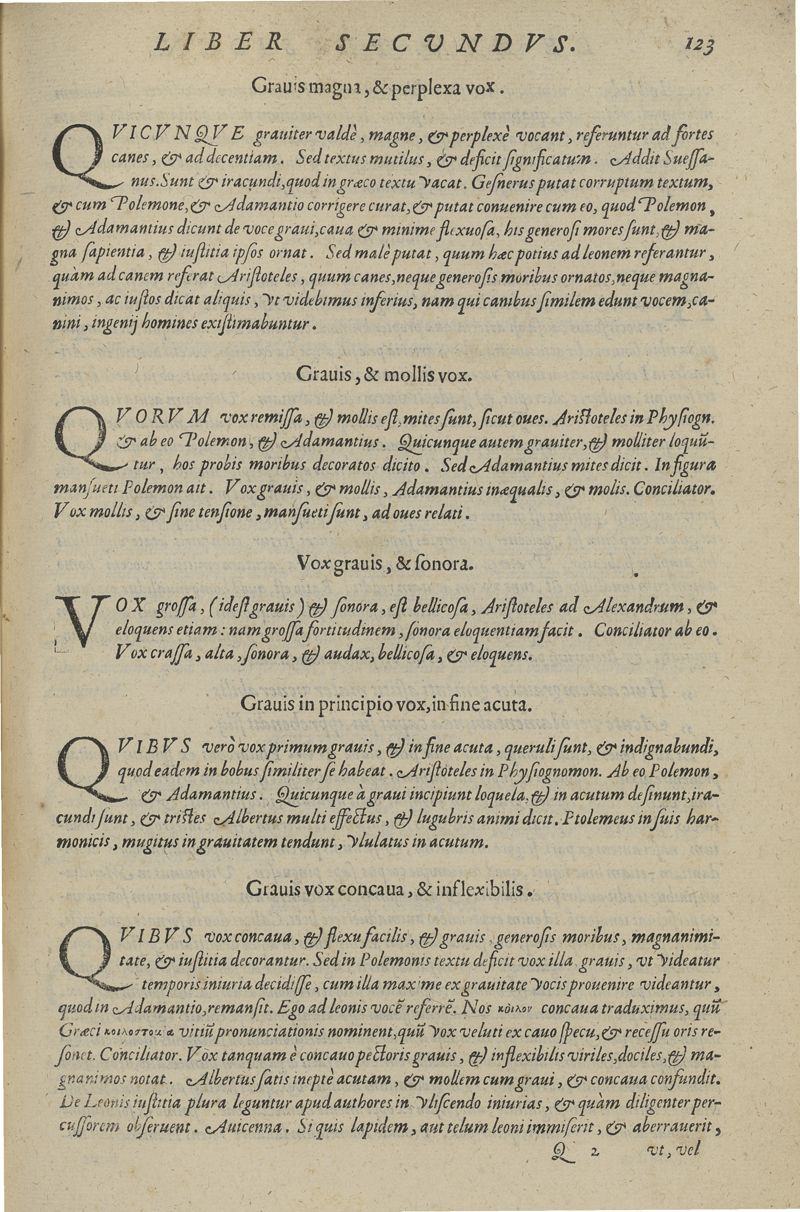 LIBER SECVNDVS. 123
Grauis magna, & perplexa vox.
QVICVNQVE grauiter valdè, magne, & perplexè vocant, referuntur ad fortes
canes, & ad decentiam. Sed textus mutilus, & deficit significatum. Addit Suessa-
nus. Sunt & iracundi, quod in græco textu vacat. Gesnerus putat corruptum textum,
& cum Polemone, & Adamantio corrigere curat, & putat conuenire cum eo, quod Polemon,
& Adamantius dicunt de voce graui, caua & minime flexuosa, his generosi mores sunt, & ma-
gna sapientia, & iustitia ipsos ornat. Sed malè putat, quum hæc potius ad leonem referantur,
quàm ad canem referat Aristoteles, quum canes, neque generosis moribus ornatos, neque magna-
nimos, ac iustos dicat aliquis, vt videbimus inferius, nam qui canibus similem edunt vocem, ca-
nini, ingenij homines existimabuntur.
Grauis, & mollis vox.
QVORVM vox remissa, & mollis est, mites sunt, sicut oues. Aristoteles in Physiogn.
& ab eo Polemon, & Adamantius. Quicunque autem grauiter, & molliter loquũ-
tur, hos probis moribus decoratos dicito. Sed Adamantius mites dicit. In figura
mansueti Polemon ait. Vox grauis, & mollis, Adamantius inæqualis, & molis. Conciliator.
Vox mollis, & sine tensione, mansueti sunt, ad oues relati.
Vox grauis, & sonora.
VOX grossa, (idest grauis) & sonora, est bellicosa, Aristoteles ad Alexandrum, &
eloquens etiam: nam grossa fortitudinem, sonora eloquentiam facit. Conciliator ab eo.
Vox crassa, alta, sonora, & audax, bellicosa, & eloquens.
Grauis in principio vox, in fine acuta.
QVIBVS verò vox primum grauis, & in fine acuta, queruli sunt, & indignabundi,
quod eadem in bobus similiter se habeat. Aristoteles in Physiognomon. Ab eo Polemon,
& Adamantius. Quicunque à graui incipiunt loquela, & in acutum desinunt, ira-
cundi sunt, & tristes Albertus multi effectus, & lugubris animi dicit. Ptolemeus in suis har-
monicis, mugitus in grauitatem tendunt, vlulatus in acutum.
Grauis vox concaua, & inflexibilis.
QVIBVS vox concaua, & flexu facilis, & grauis generosis moribus, magnanimi-
tate, & iustitia decorantur. Sed in Polemonis textu deficit vox illa grauis, vt videatur
temporis iniuria decidisse, cum illa maxime ex grauitate vocis prouenire videantur,
quod in Adamantio, remansit. Ego ad leonis vocẽ referrẽ. Nos κοιλον concaua traduximus, quũ
Græci κοιλοστομια vitiũ pronunciationis nominent, quũ vox veluti ex cauo specu, & recessu oris re-
sonet. Conciliator. Vox tanquam è concauo pectoris grauis, & inflexibilis viriles, dociles, & ma-
gnanimos notat. Albertus satis ineptè acutam, & mollem cum graui, & concaua confundit.
De Leonis iustitia plura leguntur apud authores in vliscendo iniurias, & quàm diligenter per-
cussorem obseruent. Auicenna. Si quis lapidem, aut telum leoni immiserit, & aberrauerit,
Q 2 vt, vel